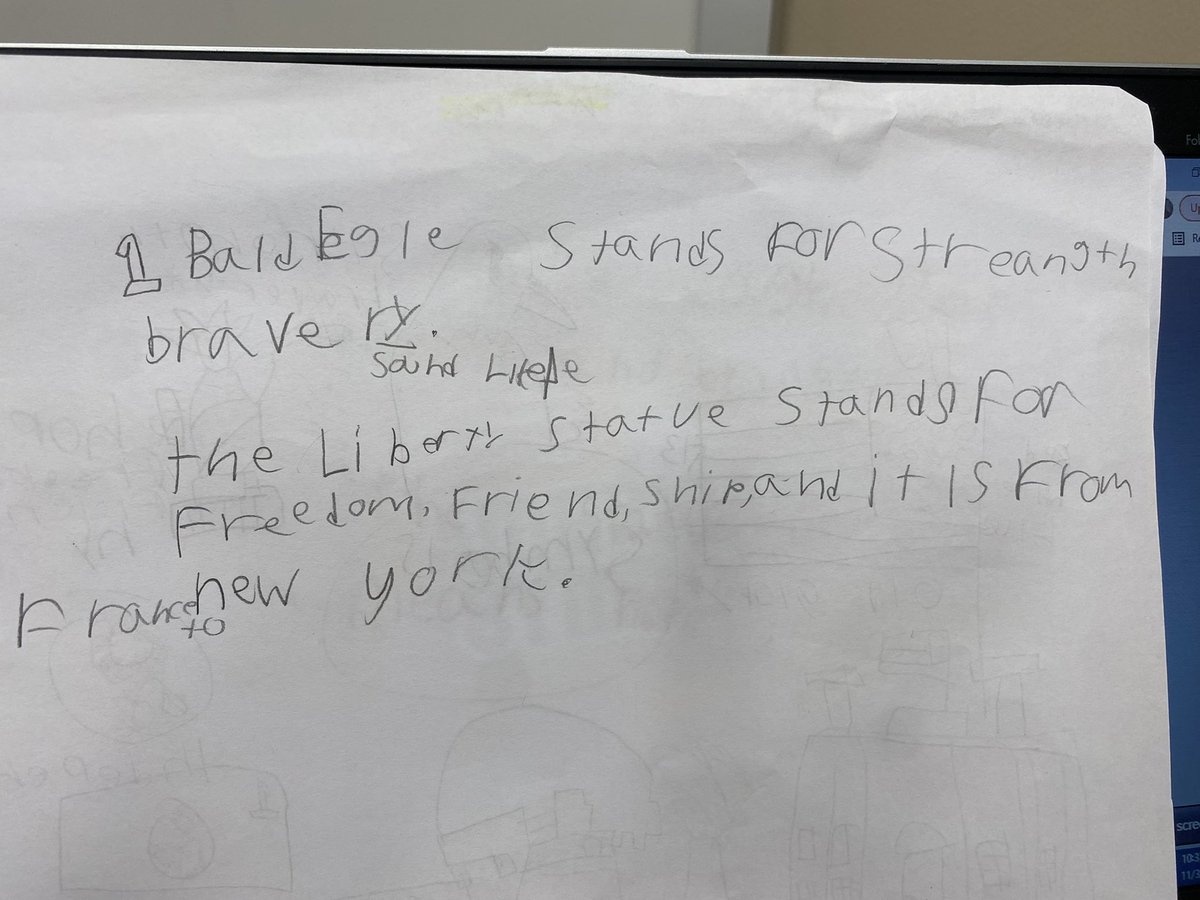 1 Bald Egle stands For streangth
bravery.
sound Like e
the Liberty statue stands For
Freedom, Friend, ship, and it is From
France to new york.
Fol
Up
Re
scree
10:3
11/3